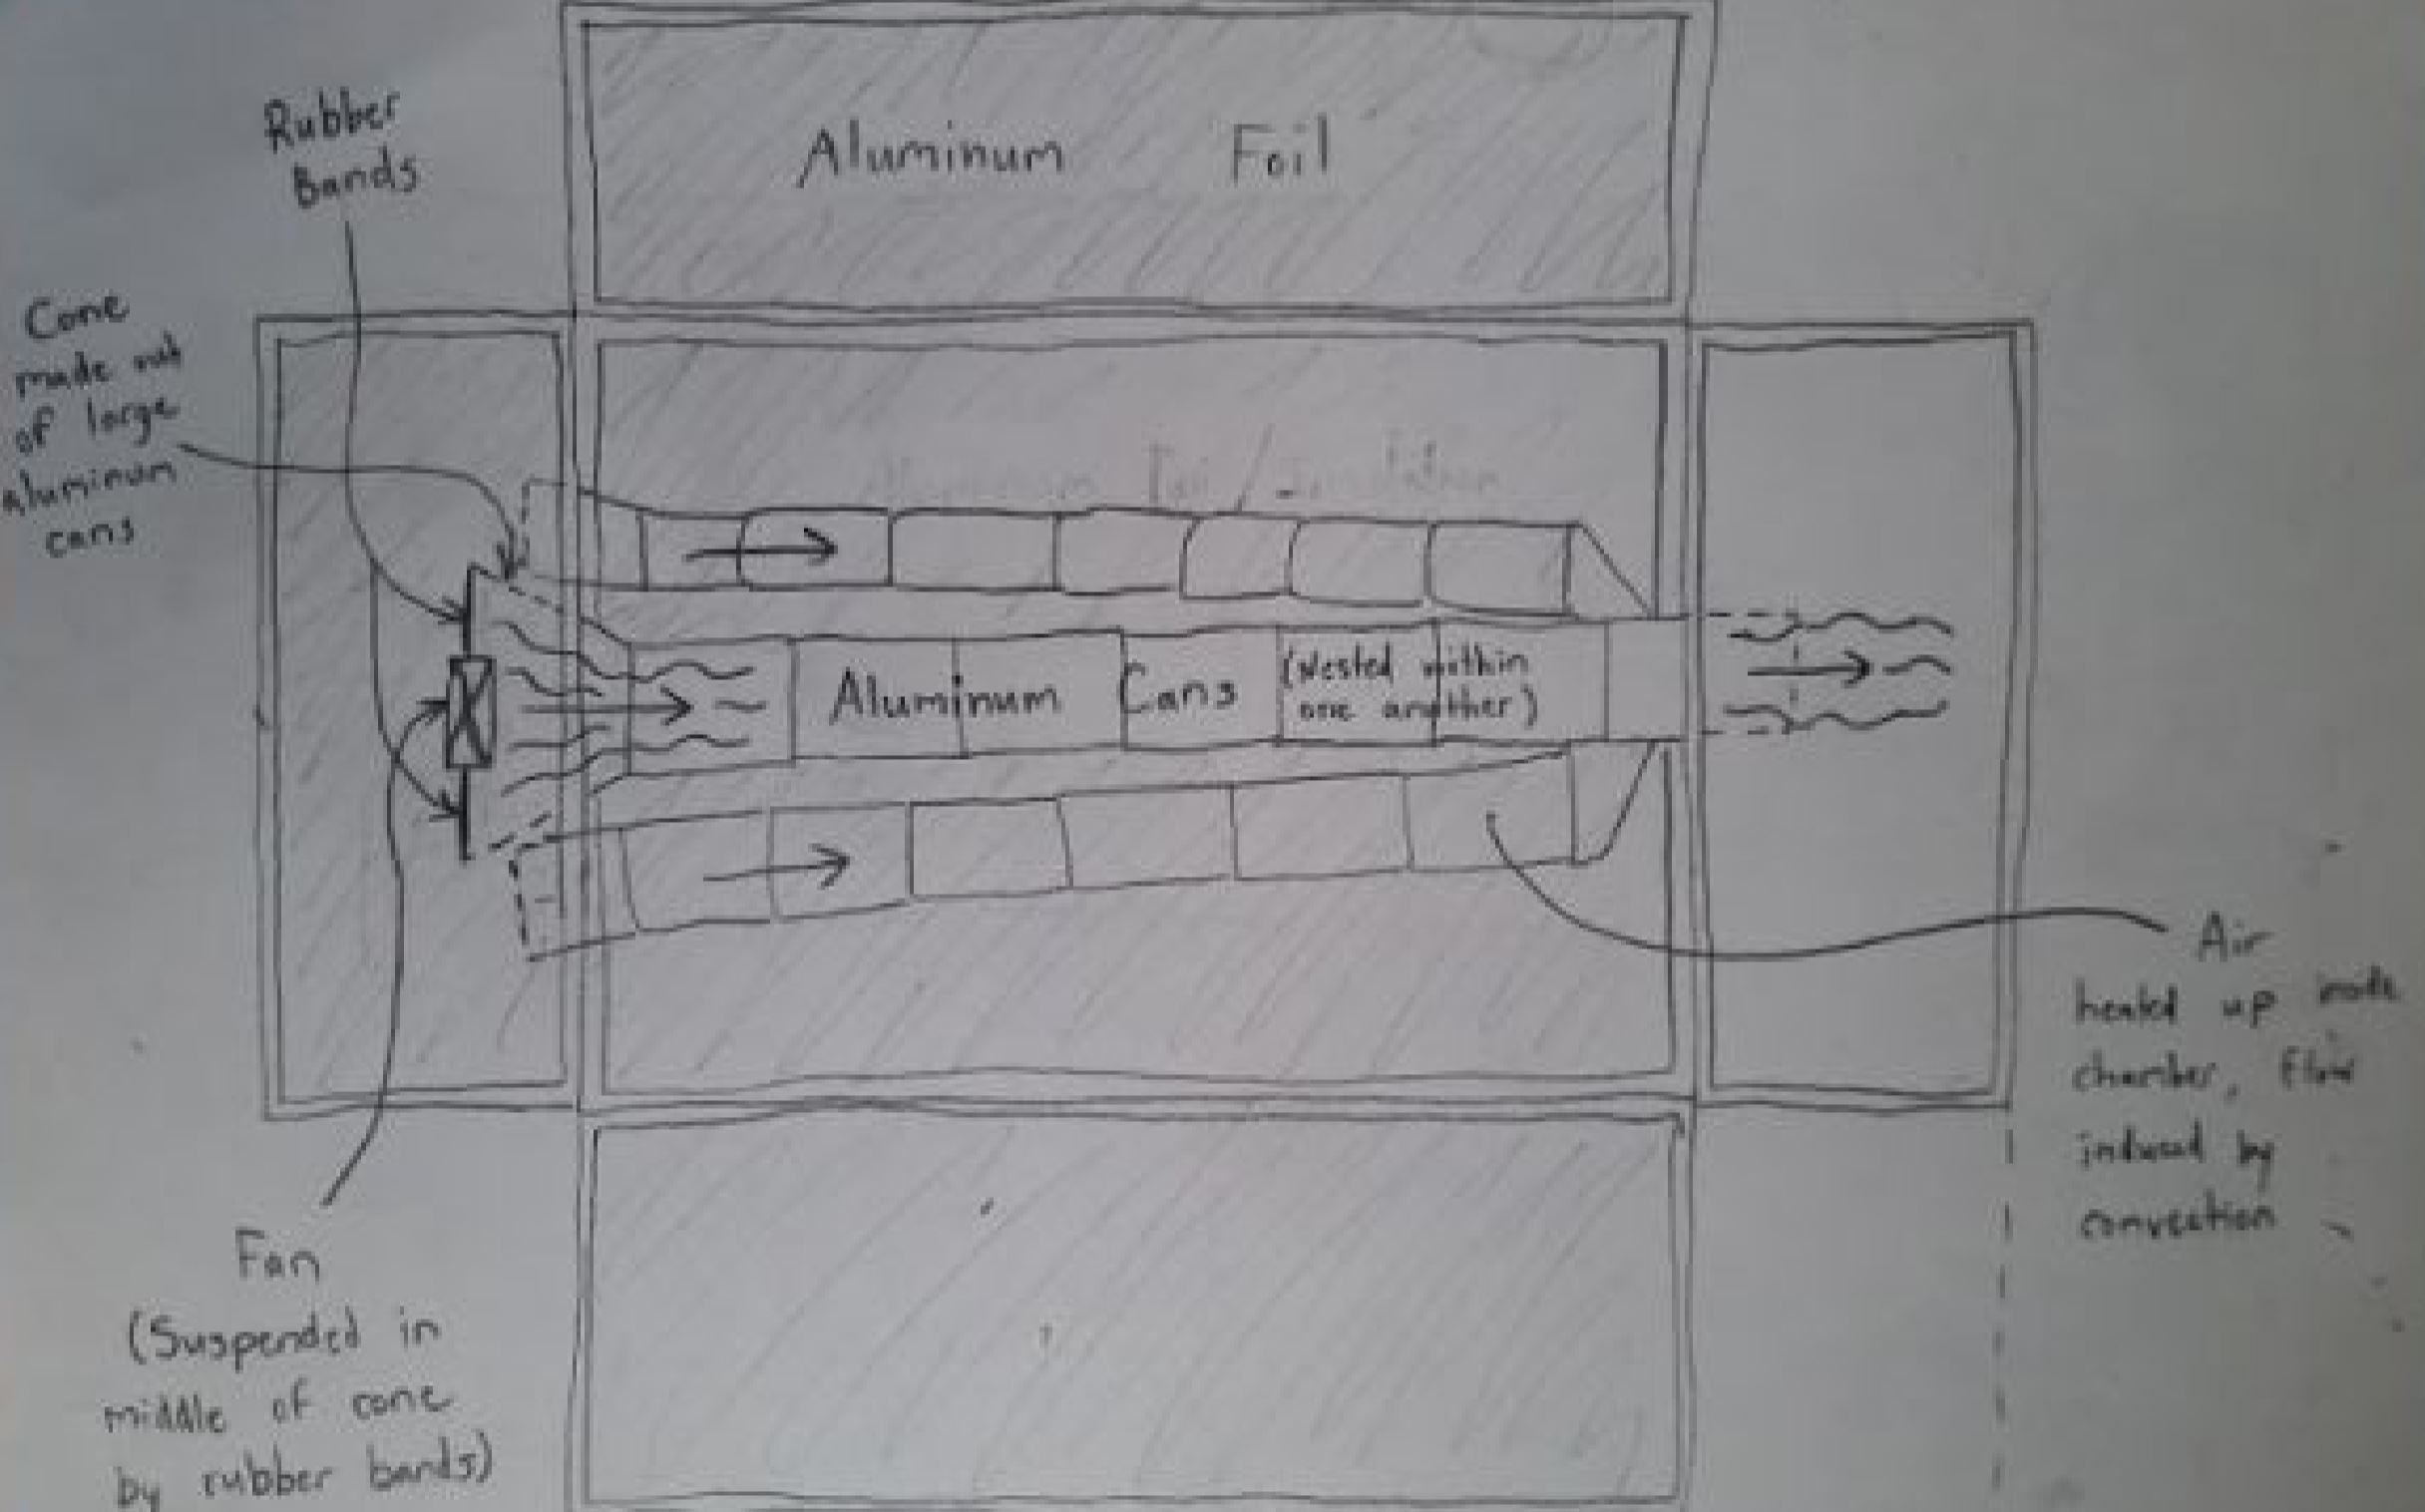 Aluminum Foil
Rubber
Bands
Cone
made out
of large
aluminum
cans
Aluminum Cans (Nested within
one another)
Air
heated up inside
chamber, flow
induced by
convection
Fan
(Suspended in
middle of cone
by rubber bands)